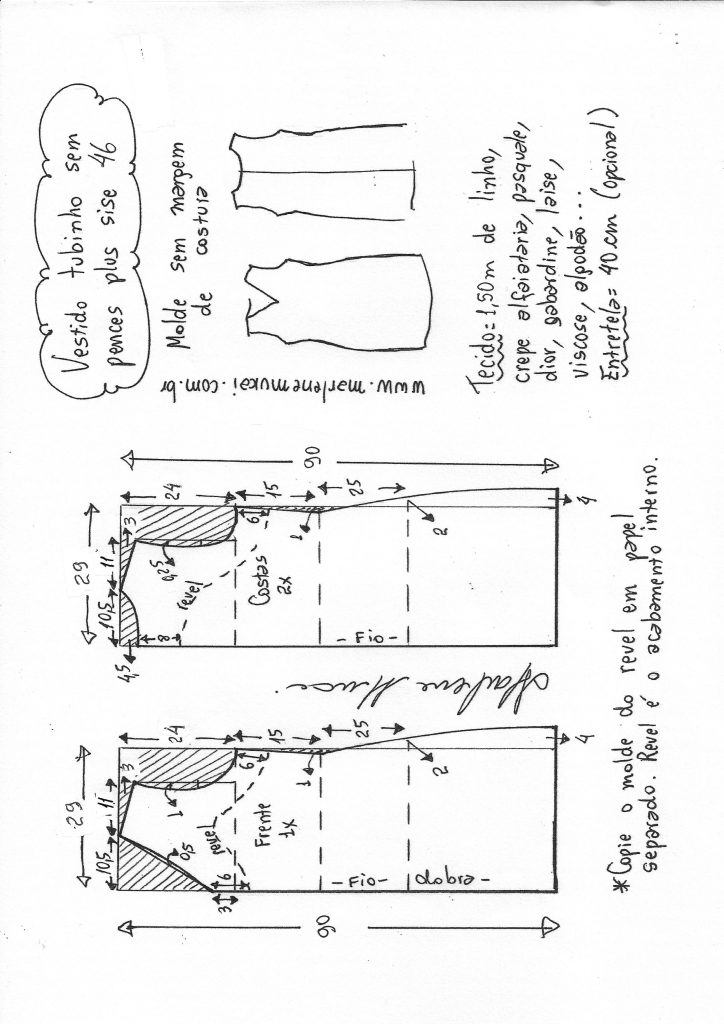 Vestido tubinho sem
pences plus sise 46
Molde sem margem
de costura
www.marlenemukai.com.br
Tecido = 1,50m de linho,
crepe alfaiataria, pasquale,
dior, gabardine, laise,
viscose, algodão...
Entretela = 40 cm (opcional)
29
10,5
11
3
24
15
25
90
4,5
8
4,25
revel
6
1
2
4
Costas
2x
- Fio -
Marlene Mukai
29
10,5
11
3
24
15
25
90
0,5
1
revel
6
6
3
1
2
4
Frente
1x
- Fio -
dobra -
*Copie o molde do revel em papel
separado. Revel é o acabamento interno.